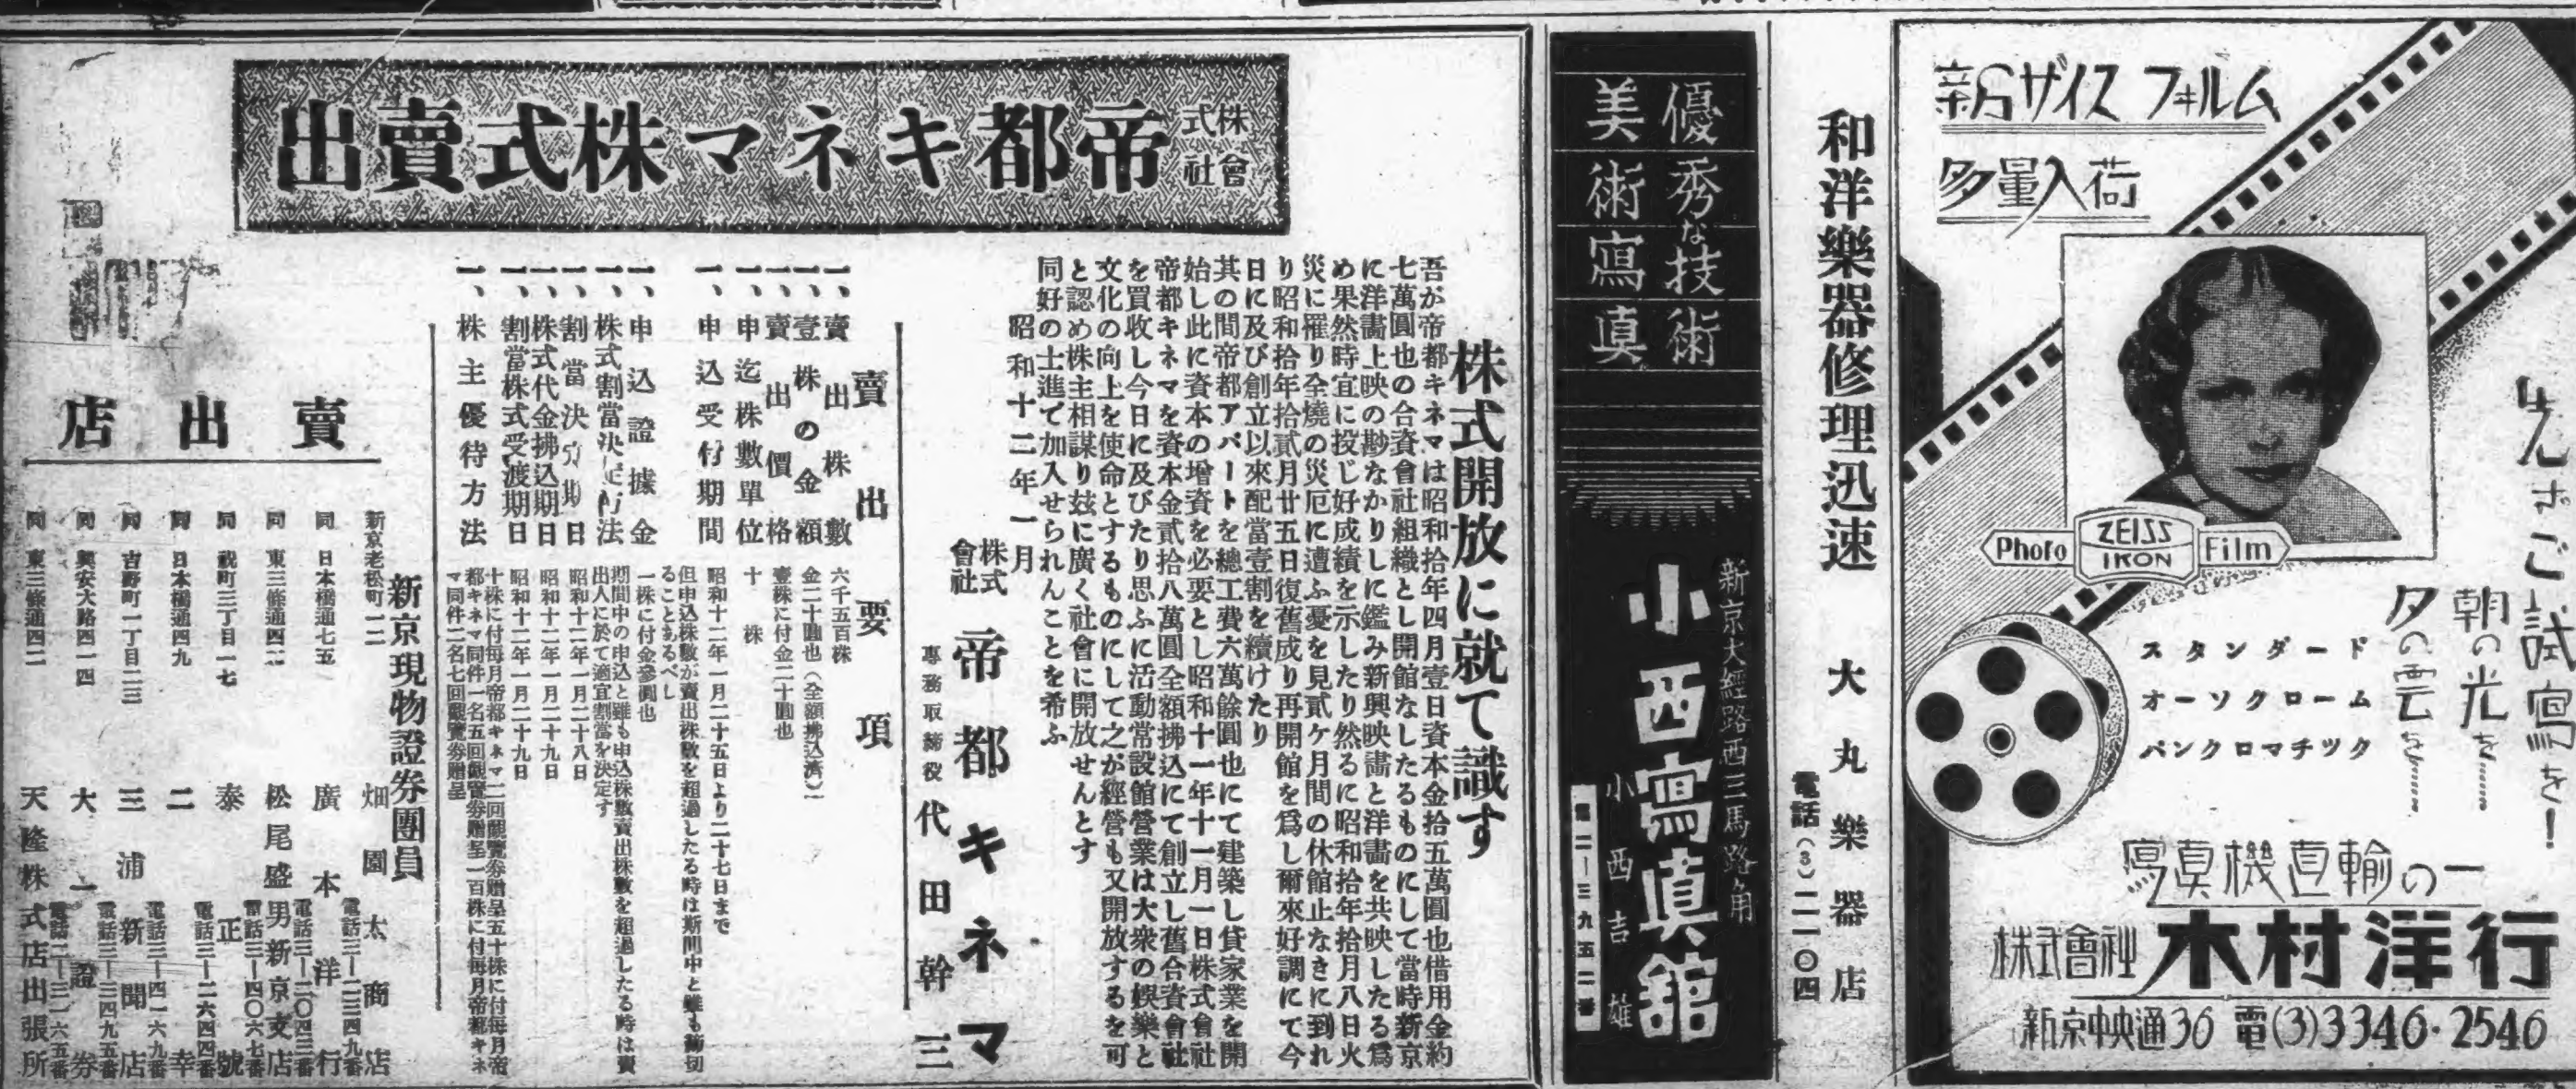 新ザイスフヰルム
多量入荷
ぜんざご試寫を!
朝の光を……
夕の雲を……
Photo ZEISS IKON Film
スタンダード
オーソクローム
パンクロマチツク
寫眞機直輸の一
株式會社 木村洋行
新京中央通36 電(3)3346・2546
和洋樂器修理迅速 大丸樂器店
電話(3)二一〇四
優秀な技術
美術寫眞
新京大經路西三馬路角
小西寫眞舘
小西吉雄
電二―三九五二番
株式會社 帝都キネマ株式賣出
株式開放に就て識す
吾が帝都キネマは昭和拾年四月壹日資本金拾五萬圓也借用金約
七萬圓也の合資會社組織とし開館なしたるものにして當時新京
に洋畵上映の尠なかりしに鑑み新興映畵と洋畵を共映したる爲
め果然時宜に投じ好成績を示したり然るに昭和拾年拾月八日火
災に罹り全燒の災厄に遭ふ憂を見貳ケ月間の休館止なきに到れ
り昭和拾年拾貳月廿五日復舊成り再開館を爲し爾來好調にて今
日に及び創立以來配當壹割を續けたり
其の間帝都アパートを總工費六萬餘圓也にて建築し貸家業を開
始し此に資本の增資を必要とし昭和十一年十一月一日株式會社
帝都キネマを資本金貳拾八萬圓全額拂込にて創立し舊合資會社
を買收し今日に及びたり思ふに活動常設館營業は大衆の娯樂と
文化の向上を使命とするものにして之が經營も又開放するを可
と認め株主相謀り玆に廣く社會に開放せんとす
同好の士進で加入せられんことを希ふ
昭和十二年一月
株式會社 帝都キネマ
專務取締役 代田幹三
賣出要項
一、賣出株數 六千五百株
一、壹株の金額 金二十圓也(全額拂込濟)
一、賣出價格 壹株に付金二十圓也
一、申込株數單位 十株
一、申込受付期間 昭和十二年一月二十五日より二十七日まで
但申込株數が賣出株數を超過したる時は期間中と雖も締切
ることあるべし
一、申込證據金 一株に付金參圓也
一、株式割當決定方法 期間中の申込と雖も申込株數賣出株數を超過したる時は賣
出人に於て適宜割當を決定す
一、割當決定期日 昭和十二年一月二十八日
一、株式代金拂込期日 昭和十二年一月二十九日
一、割當株式受渡期日 昭和十二年一月二十九日
一、株主優待方法 十株に付毎月帝都キネマ二回觀覽券贈呈五十株に付毎月帝
都キネマ同伴一名五回觀覽券贈呈一百株に付毎月帝都キネ
マ同伴二名七回觀覽券贈呈
賣出店
新京現物證券團員
新京老松町一二 畑園太商店 電話三―二三四九番
同 日本橋通七五 廣本洋行 電話三―二〇四三番
同 東三條通四二 松尾盛男新京支店 電話三―四〇六七番
同 祝町三丁目一七 泰正號 電話三―二六四四番
同 日本橋通四九 二幸 電話三―四一六九番
同 吉野町一丁目二三 三浦新聞店 電話三―三四九五番
同 興安大路四一四 大一證券 電話二―三一六五番
同 東三條通四二 天隆株式店出張所